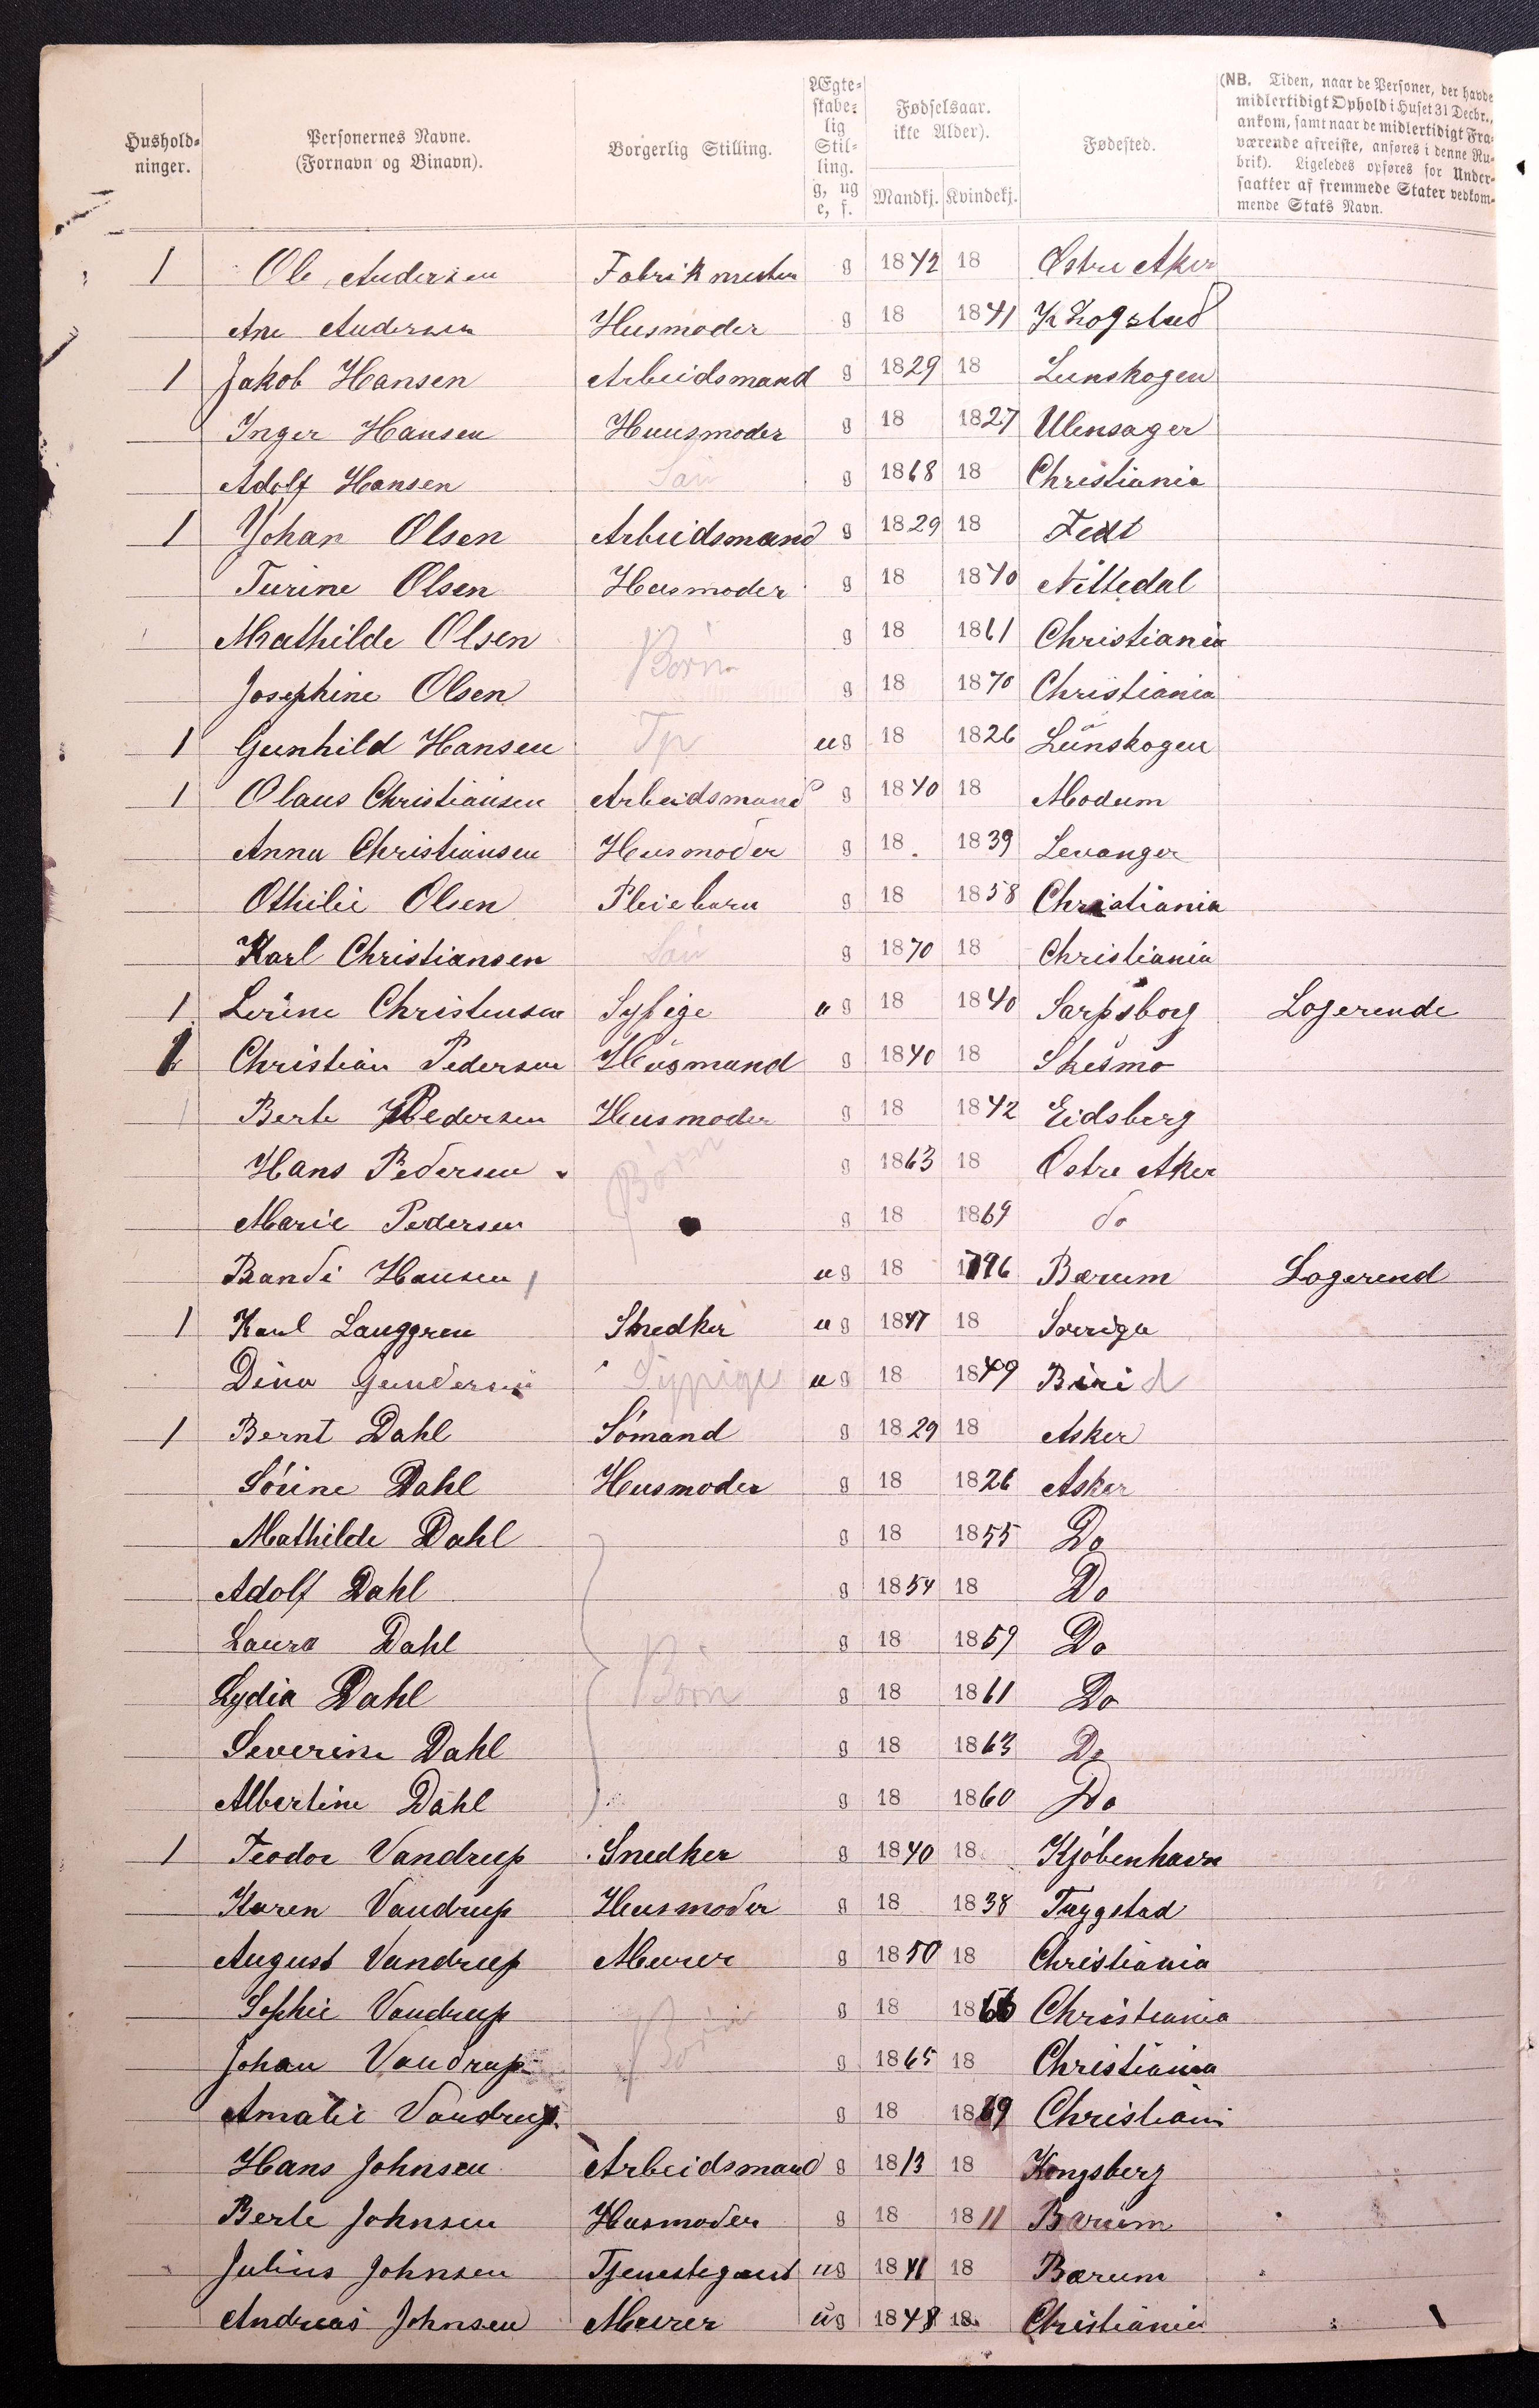 Hushold-
ninger.
Personernes Navne.
(Fornavn og Binavn).
Borgerlig Stilling.
Ægte-
skabe-
lig
Stil-
ling.
g, ug
e, f.
Fødselsaar.
ikke Alder).
Mandkj. Kvindekj.
Fødested.
(NB. Tiden, naar de Personer, der havde
midlertidigt Ophold i Huset 31 Decbr.,
ankom, samt naar de midlertidigt Fra-
værende afreiste, anføres i denne Ru-
brik). Ligeledes opføres for Under-
saatter af fremmede Stater vedkom-
mende Stats Navn.
1 Ole Andersen Fabrikmester g 1842 18 Østre Aker
Ane Andersen Husmoder g 18 1841 Krogstad
1 Jakob Hansen Arbeidsmand g 1829 18 Lunskogen
Inger Hansen Huusmoder g 18 1827 Ulensager
Adolf Hansen Søn g 1868 18 Christiania
1 Johan Olsen Arbeidsmand g 1829 18
Turine Olsen Husmoder g 18 1840 Nittedal
Mathilde Olsen Børn g 18 1861 Christiania
Josephine Olsen g 18 1870 Christiania
1 Gunhild Hansen Tp ug 18 1826 Lunskogen
1 Olaus Christiansen Arbeidsmand g 1840 18 Modum
Anna Christiansen Husmoder g 18 1839 Levanger
Othilie Olsen Pleiebarn g 18 1858 Christiania
Karl Christiansen Søn g 1870 18 Christiania
1 Christensen Sypige ug 18 1840 Sarpsborg Logerende
1 Christian Pedersen Husmand g 1840 18 Skesmo
Berte Pedersen Husmoder g 18 1842 Eidsberg
Hans Pedersen Børn g 1863 18 Østre Aker
Marie Pedersen g 18 1869 do
Randi Hansen ug 18 1796 Bærum Logerend
1 Karl Langgren Snedker ug 1847 18 Sverige
Dina Gundersen Sypige ug 18 1849 Birid
1 Bernt Dahl Sømand g 1829 18 Asker
Sørine Dahl Husmoder g 18 1826 Asker
Mathilde Dahl g 18 1855 Do
Adolf Dahl g 1854 18 Do
Laura Dahl g 18 1859 Do
Lydia Dahl Børn g 18 1861 Do
Severine Dahl g 18 1863 Do
Albertine Dahl g 18 1860 Do
1 Teodor Vandrup Snedker g 1840 18 Kjøbenhavn
Karen Vandrup Husmoder g 18 1838 Tryggstad
August Vandrup Murer g 1850 18 Christiania
Sophie Vandrup Børn g 18 1866 Christiania
Johan Vandrup g 1865 18 Christiania
Amalie Vandrup g 18 1869 Christiani
Hans Johnsen Arbeidsmand g 1813 18 Kongsberg
Berte Johnsen Husmoder g 18 1811 Bærum
Julius Johnsen Tjenestegaut ug 1841 18 Bærum
Andreas Johnsen Murer ug 1848 18 Christiania